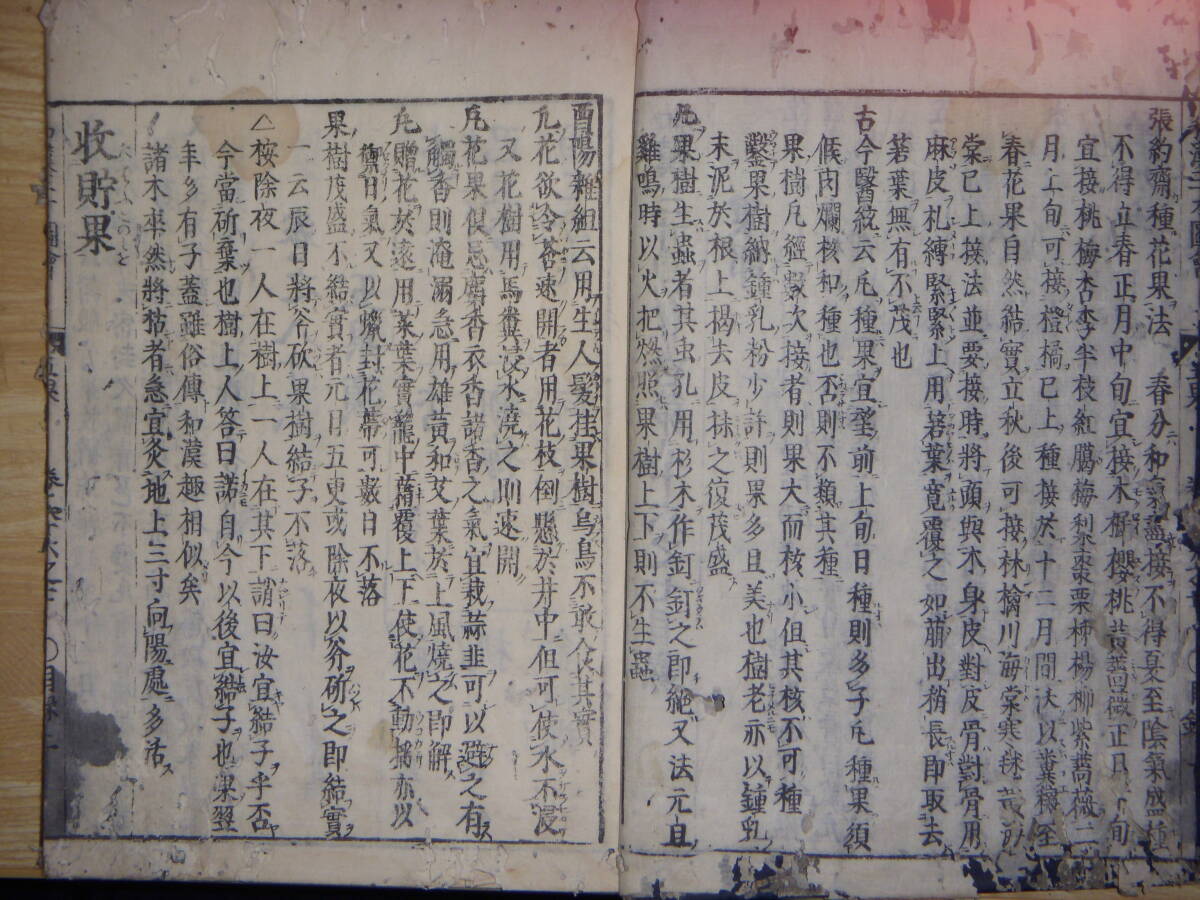 張約齋種花果法 春分和氣盡接不得夏至陰氣盛種
不得立春正月中旬宜接木樨櫻桃黃薔薇正月下旬
宜接桃梅杏李半枝紅臘梅梨棗栗柿楊柳紫薔薇二
月上旬可接橙橘已上種接於十二月間沃以糞穰至
春花果自然結實立秋後可接林檎川海棠寒毬
棠已上接法並要接時將頭與木身皮對皮骨對骨用
麻皮札縛緊緊上用箬葉寬覆之如萠出稍長即取去
箬葉無有不茂也
古今醫統云凡種果宜望前上旬日種則多子凡種果須
候肉爛核和種也否則不類其種
果樹凡經數次接者則果大而核小但其核不可種
鑿果樹納鍾乳粉少許則果多且美也樹老亦以鍾乳
末泥於根上揭去皮抹之復茂盛
凡果樹生蟲者其虫孔用杉木作釘釘之即絕又法元旦
雞鳴時以火把燃照果樹上下則不生蟲
酉陽雜組云用生人髮挂果樹烏鳥不敢食其實
凡花欲令蓓速開者用花枝倒懸於井中但可使水不浸
又花樹用馬糞浸水澆之則速開
凡花果俱忌麝香衣香諸香之氣宜栽蒜韭可以避之有
觸香則淹溺急用雄黃和艾葉於上風燒之即解
凡贈花於遠用菜葉實籠中藉覆上下使花不動搖亦以
禦日氣又以蠟封花蒂可數日不落
果樹茂盛不結實者元日五更或除夜以斧斫之即結實
一云辰日將斧砍果樹結子不落
△桉除夜一人在樹上一人在其下謂曰汝宜結子乎否
今當斫棄也樹上人答曰諾自今以後宜結子也果翌
年多有子蓋雖俗傳和漢趣相似矣
諸木率然將枯者急宜灸地上三寸向陽處多活
收貯果